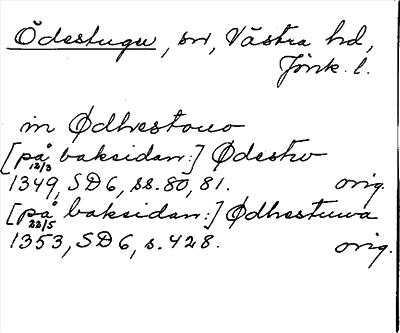 Ödestugu, sn, Västra hd,
Jönk. l.
in Ødhestouo
[på baksidan:] Ødesto
12/3
1349, SD6, ss. 80, 81. orig.
[på baksidan:] Ødhestuwa
22/5
1353, SD6, s. 428. orig.